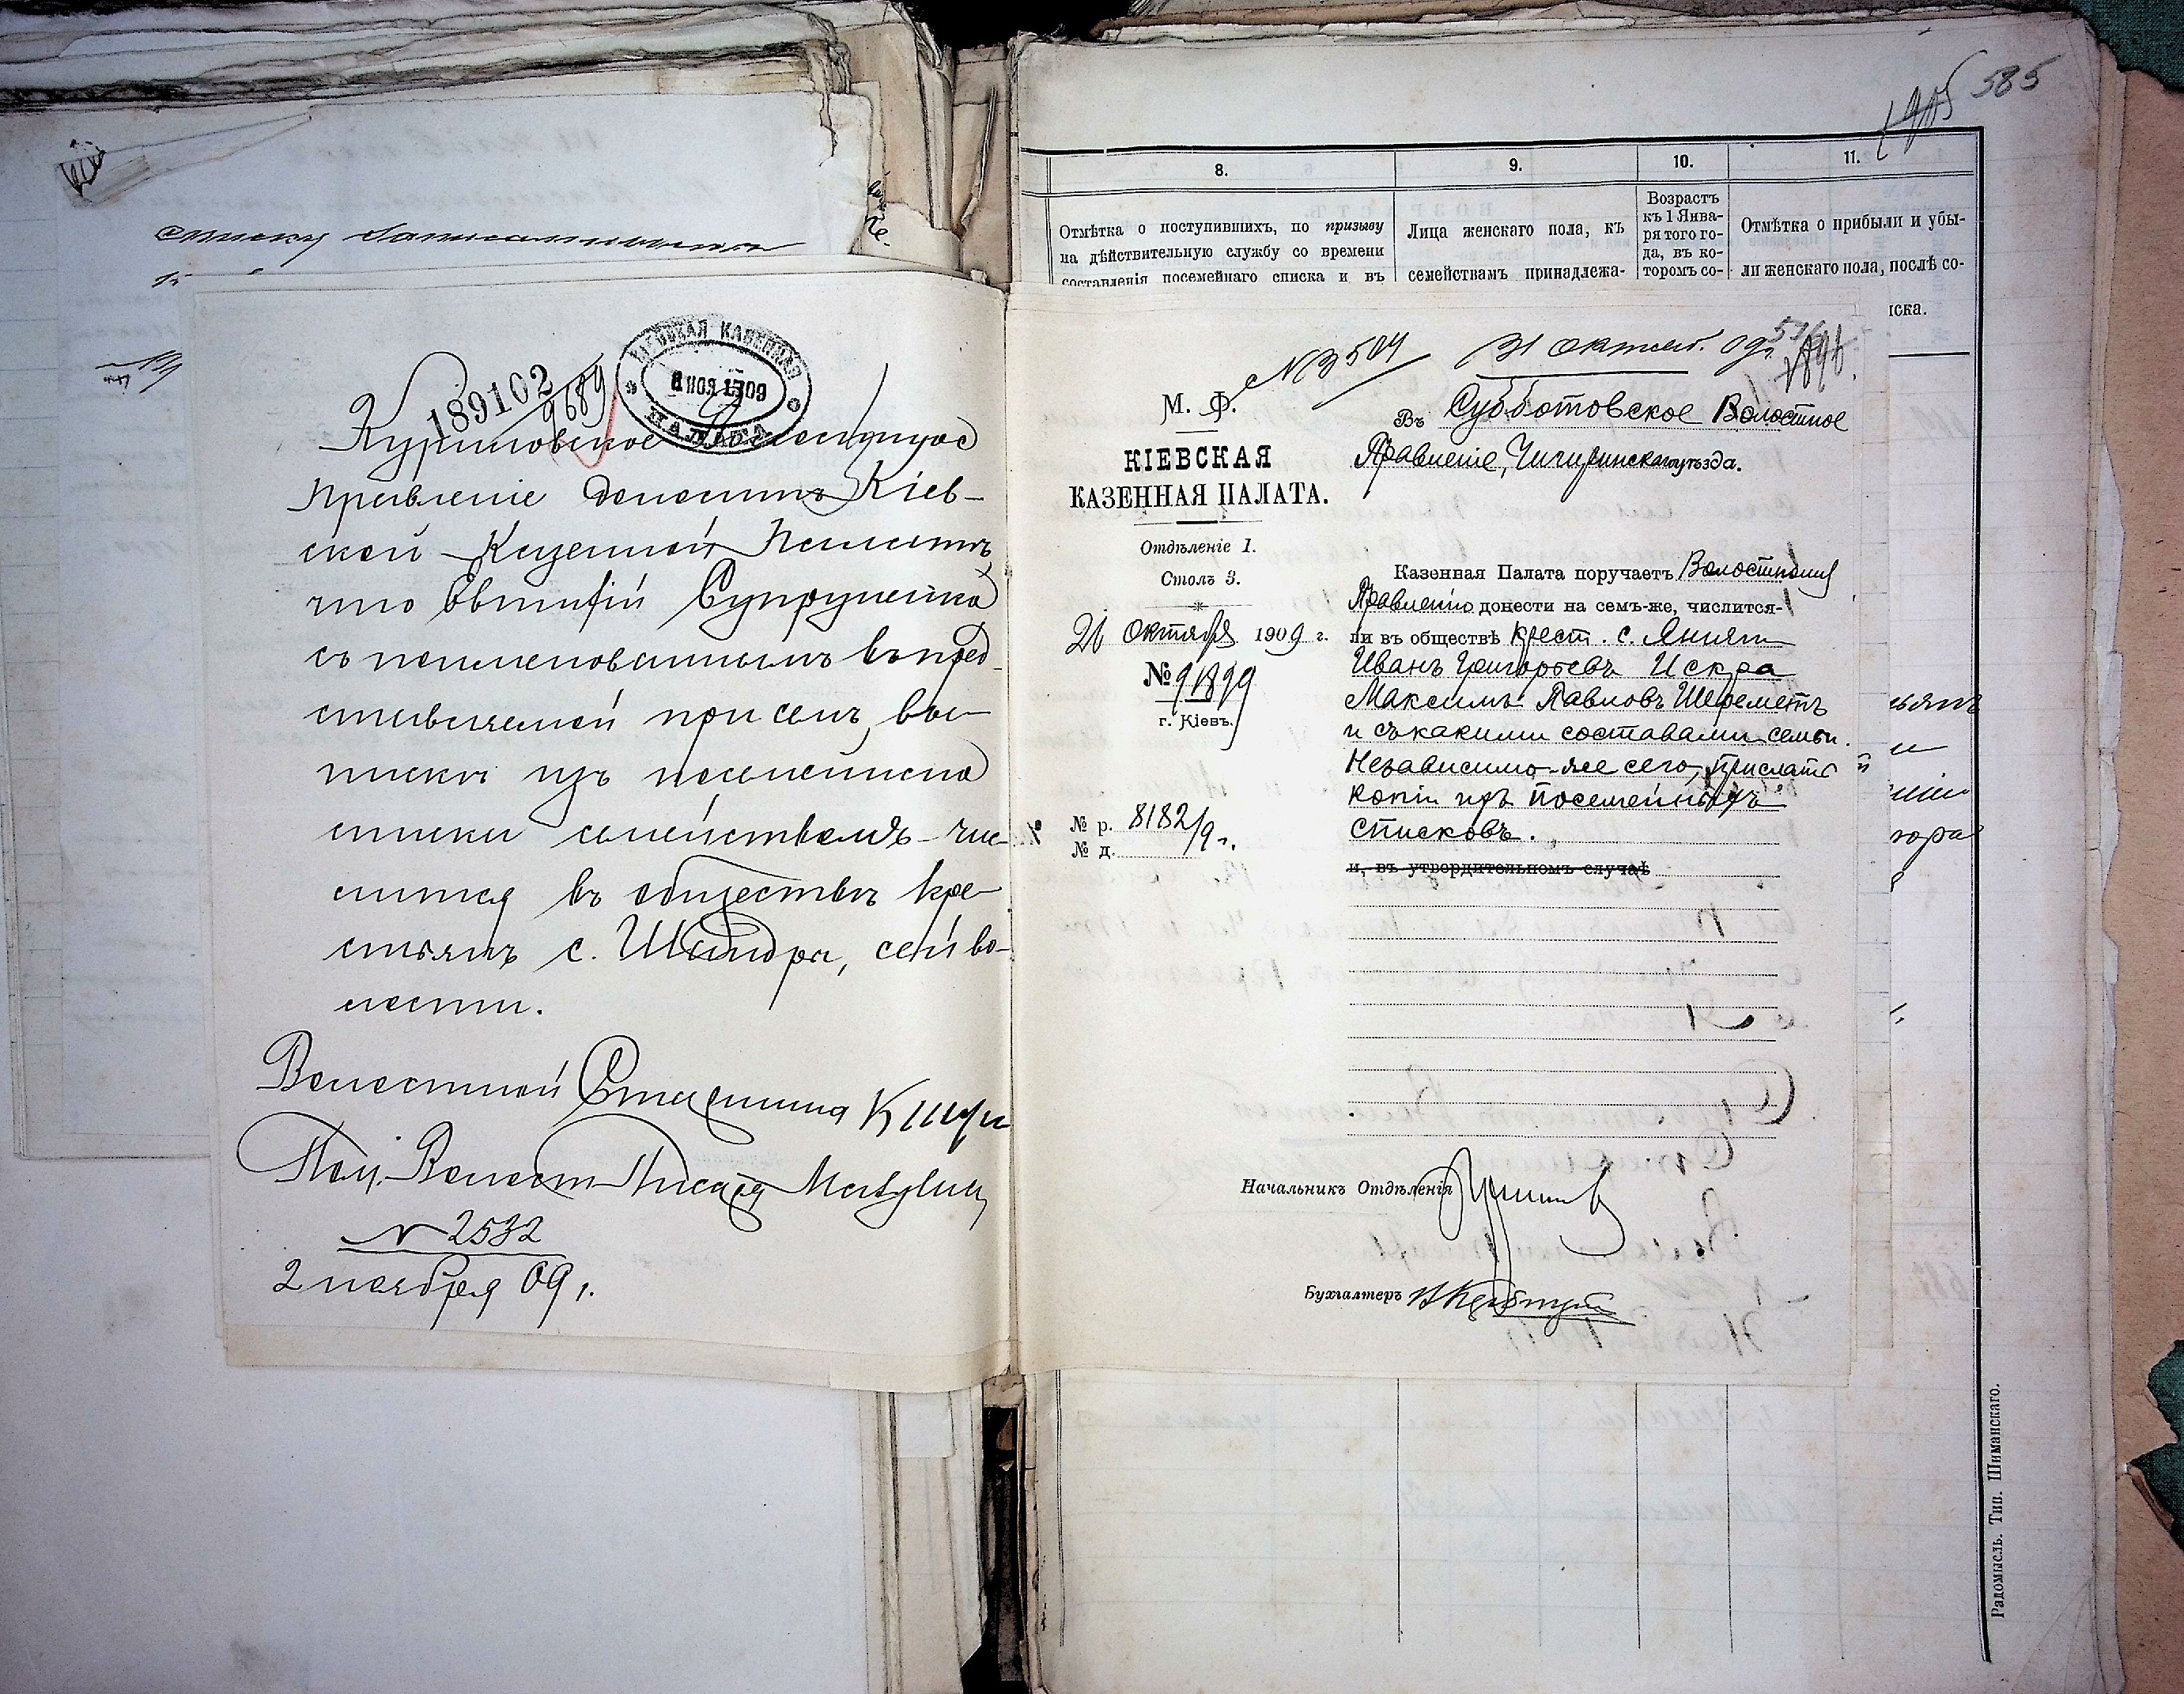 списку
КІЕВСКАЯ КАЗЕННАЯ
ПАЛАТА
8 НОЯ 1909
189102
9689
Волостное
Правленіе доноситъ Кіев-
ской Казенной Палатѣ,
что Евтифій Супруненко
съ поименованнымъ въ пред-
ставляемой при семъ, вы-
писки изъ посемейнаго
списка семействомъ чис-
лится въ обществѣ кре-
стьянъ с. Шандры, сей во-
лости.
Волостной Старшина
Пом. Волост. Писаря
№ 2532
2 ноября 09 г.
585
8.
9.
10.
11.
Отмѣтка о поступившихъ, по призыву
на дѣйствительную службу со времени
составленія посемейнаго списка и въ
Лица женскаго пола, къ
семействамъ принадлежа-
Возрастъ
къ 1 Янва-
ря того го-
да, въ ко-
торомъ со-
Отмѣтка о прибыли и убы-
ли женскаго пола, послѣ со-
иска.
№ 3504
31 октяб. 09 г.
М. Ф.
КІЕВСКАЯ
КАЗЕННАЯ ПАЛАТА.
Отдѣленіе 1.
Столъ 3.
26 октября 1909 г.
№ 91899
г. Кіевъ.
№ р. 8182/9 г.
№ д.
Въ Субботовское Волостное
Правленіе, Чигиринскаго уѣзда.
Казенная Палата поручаетъ Волостному
Правленію донести на семъ-же, числится-
ли въ обществѣ крест. с.
Иванъ Григорьевъ Искра
Максимъ Павловъ Шереметъ
и съ какими составами семьи.
Независимо-же сего, прислать
копіи изъ посемейныхъ
списковъ.
и, въ утвердительномъ случаѣ
Начальникъ Отдѣленія
Бухгалтеръ
Радомысль. Тип. Шиманскаго.